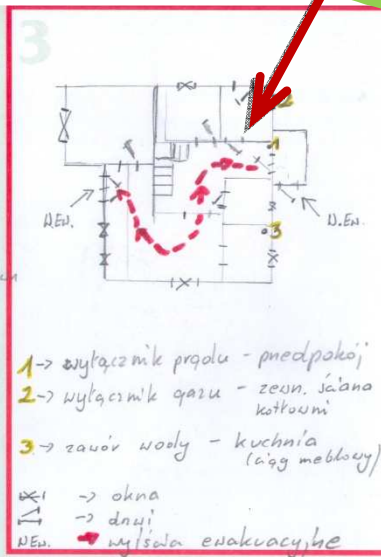 3
2
1
D.EW.
D.EW.
3
1 -> wyłącznik prądu - przedpokój
2 -> wyłącznik gazu - zewn. ściana
kotłowni
3 -> zawór wody - kuchnia
(ciąg meblowy)
-> okna
-> drzwi
wyjścia ewakuacyjne